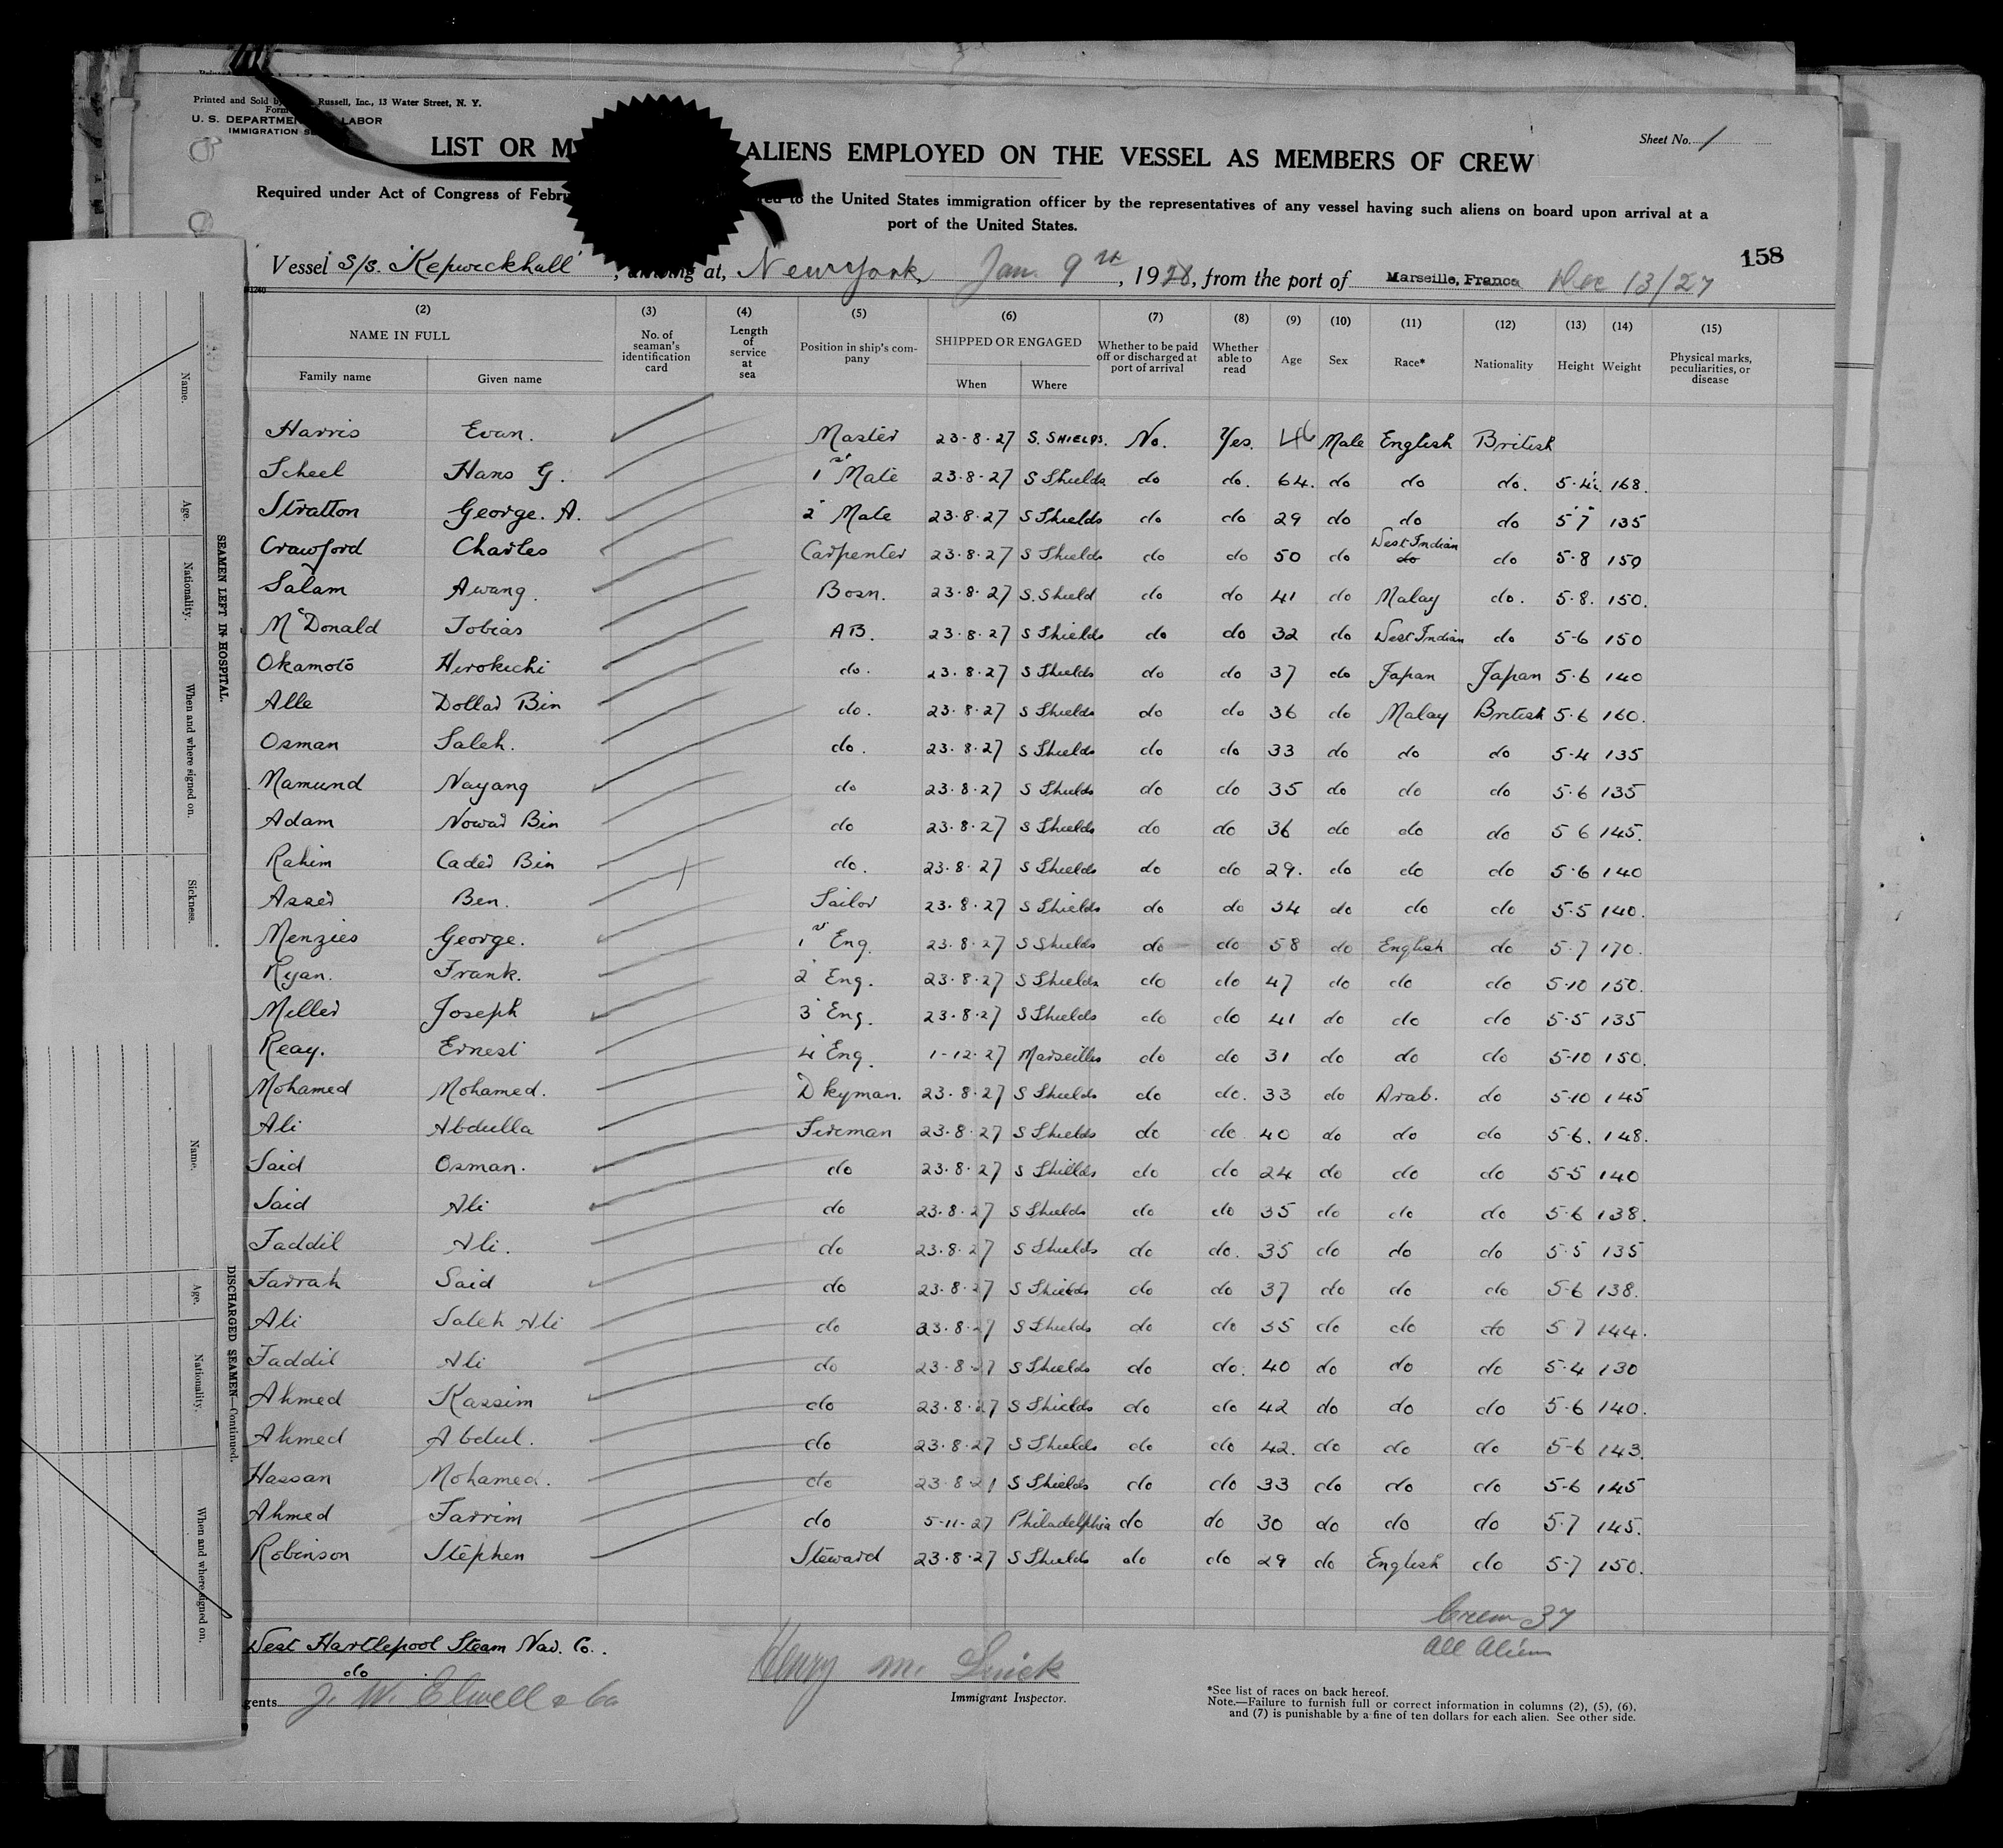 Printed and Sold by Russell, Inc., 13 Water Street, N. Y.
Form
U. S. DEPARTMENT LABOR
IMMIGRATION SE
Sheet No. 1
LIST OR M ALIENS EMPLOYED ON THE VESSEL AS MEMBERS OF CREW
Required under Act of Congress of Febru red to the United States immigration officer by the representatives of any vessel having such aliens on board upon arrival at a
port of the United States.
158
Vessel S/S. "Kepwickhall", arriving at, New York, Jan. 9th, 1928, from the port of Marseille, France Dec 13/27
(2) (3) (4) (5) (6) (7) (8) (9) (10) (11) (12) (13) (14) (15)
NAME IN FULL No. of seaman's identification card Length of service at sea Position in ship's company SHIPPED OR ENGAGED Whether to be paid off or discharged at port of arrival Whether able to read Age Sex Race* Nationality Height Weight Physical marks, peculiarities, or disease
Family name Given name When Where
Harris Evan. Master 23-8-27 S. SHIELDS. No. Yes. 46 Male English British
Scheel Hans G. 1st Mate 23-8-27 S Shields do do. 64. do do do. 5-4½ 168.
Stratton George. A. 2" Mate 23-8-27 S Shields do do 29 do do do 5'7" 135
Crawford Charles Carpenter 23-8-27 S Shields do do 50 do West Indian do do 5-8 150
Salam Awang. Bosn. 23-8-27 S. Shield do do 41 do Malay do. 5-8. 150.
McDonald Tobias AB. 23-8-27 S Shields do do 32 do West Indian do 5-6 150
Okamoto Hirokichi do. 23-8-27 S Shields do do 37 do Japan Japan 5-6 140
Alle Dollar Bin do. 23-8-27 S Shields do do 36 do Malay British 5-6 160.
Osman Saleh. do. 23-8-27 S Shields do do 33 do do do 5-4 135
Mamund Nayang do 23-8-27 S Shields do do 35 do do do 5-6 135
Adam Nowar Bin do 23-8-27 S Shields do do 36 do do do 5 6 145.
Rahim Cader Bin do. 23-8-27 S Shields do do 29. do do do 5-6 140
Asser Ben. Sailor 23-8-27 S Shields do do 34 do do do 5-5 140.
Menzies George. 1st Eng. 23-8-27 S Shields do do 58 do English do 5-7 170.
Ryan. Frank. 2" Eng. 23-8-27 S Shields do do 47 do do do 5-10 150.
Miller Joseph 3" Eng. 23-8-27 S Shields do do 41 do do do 5-5 135
Reay. Ernest 4" Eng. 1-12-27 Marseilles do do 31 do do do 5-10 150.
Mohamed Mohamed. Dkyman. 23-8-27 S Shields do do. 33 do Arab. do 5-10 145
Ali Abdulla Fireman 23-8-27 S Shields do do 40 do do do 5-6. 148.
Said Osman. do 23-8-27 S Shields do do 24 do do do 5-5 140
Said Ali do 23-8-27 S Shields do do 35 do do do 5-6 138.
Faddil Ali. do 23-8-27 S Shields do do. 35 do do do 5-5 135
Farrah Said do 23-8-27 S Shields do do 37 do do do 5-6 138.
Ali Saleh Ali do 23-8-27 S Shields do do 35 do do do 5 7 144.
Faddil Ali do 23-8-27 S Shields do do. 40 do do do 5-4 130
Ahmed Kassim do 23-8-27 S Shields do do 42 do do do 5-6 140.
Ahmed Abdul. do 23-8-27 S Shields do do 42. do do do 5-6 143.
Hassan Mohamed. do 23-8-27 S Shields do do 33 do do do 5-6 145
Ahmed Farrim do 5-11-27 Philadelphia do do 30 do do do 5-7 145.
Robinson Stephen Steward 23-8-27 S Shields do do 29 do English do 5-7 150.
Crew 37
All Aliens
West Hartlepool Steam Nav. Co.
do
gents J. W. Elwell & Co
Henry M.
Immigrant Inspector.
*See list of races on back hereof.
Note.—Failure to furnish full or correct information in columns (2), (5), (6),
and (7) is punishable by a fine of ten dollars for each alien. See other side.
SEAMEN LEFT IN HOSPITAL.
Name.
Age.
Nationality.
When and where signed on.
Sickness.
DISCHARGED SEAMEN—Continued.
Name.
Age.
Nationality.
When and where signed on.